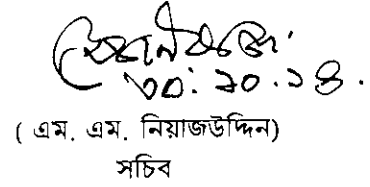 ৩০.১০.১৪.
( এম. এম. নিয়াজউদ্দিন)
সচিব